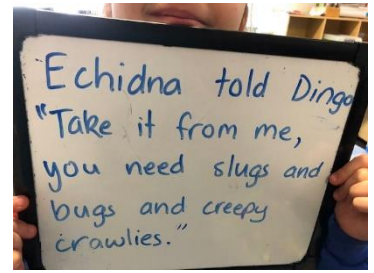 Echidna told Dingo
"Take it from me,
you need slugs and
bugs and creepy
crawlies."